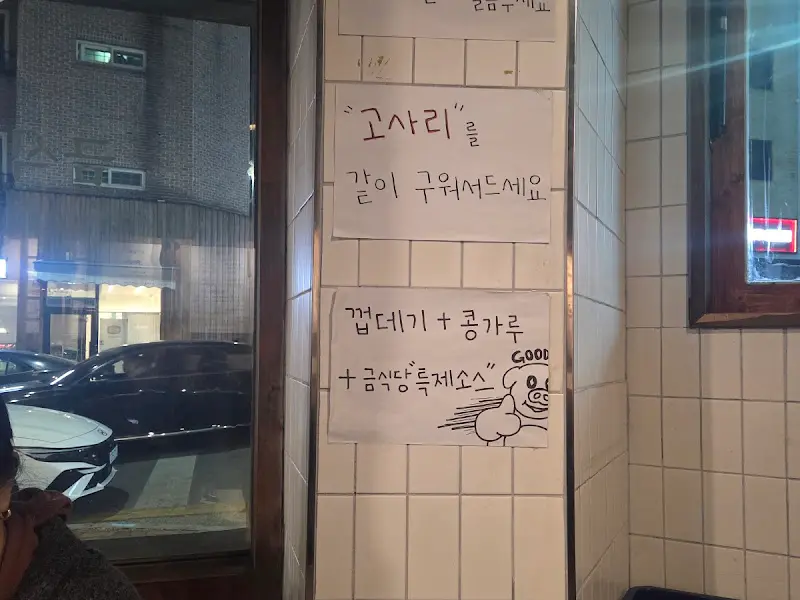 "고사리"를
같이 구워서드세요
껍데기 + 콩가루
+ 금식당"특제소스"
GOOD